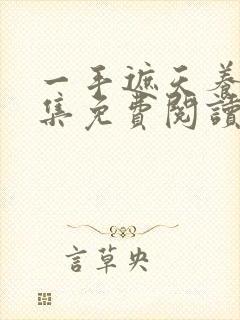 一手遮天養
集免費閱讀
言草央